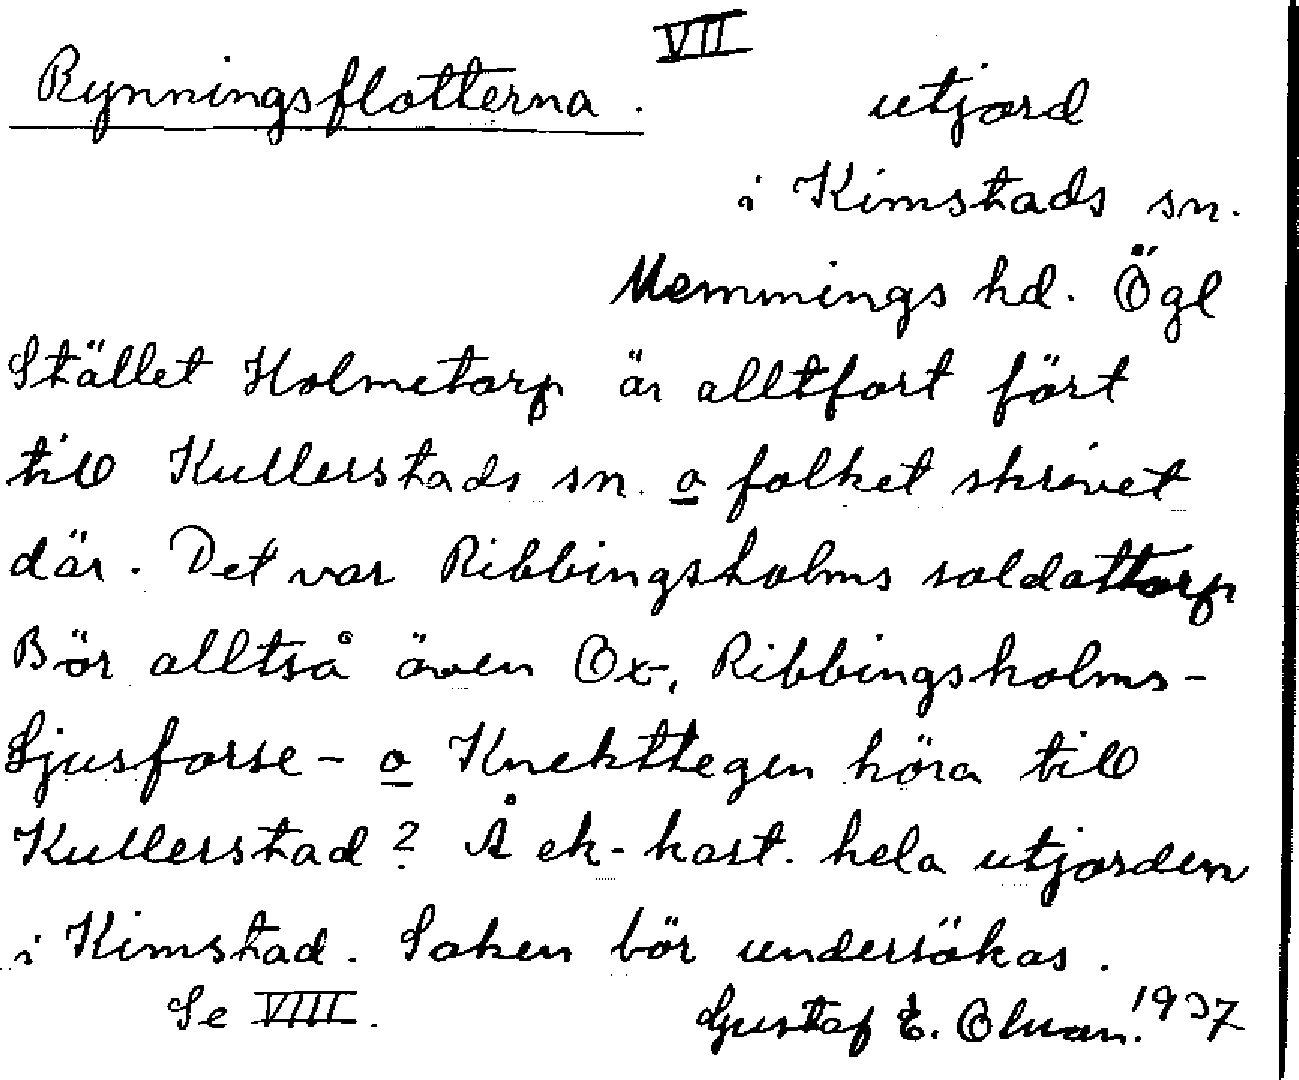 VII
Rynningsflotterna. utjord
i Kimstads sn.
Memmings hd. Ögl
Stället Holmetorp är alltfort fört
till Kullerstads sn. o folket skrivet
där. Det var Ribbingsholms soldattorp
Bör alltså även Ox-, Ribbingsholms-
Ljusforse- o Knekttegen höra till
Kullerstad? Å ek-kart. hela utjorden
i Kimstad. Saken bör undersökas.
Se VIII. Gustaf E. Olman. 1937